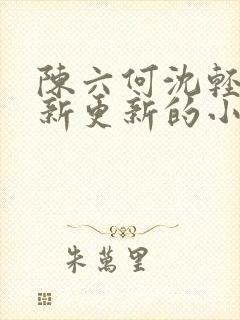 陳六何沈輕
新更新的小
朱萬里